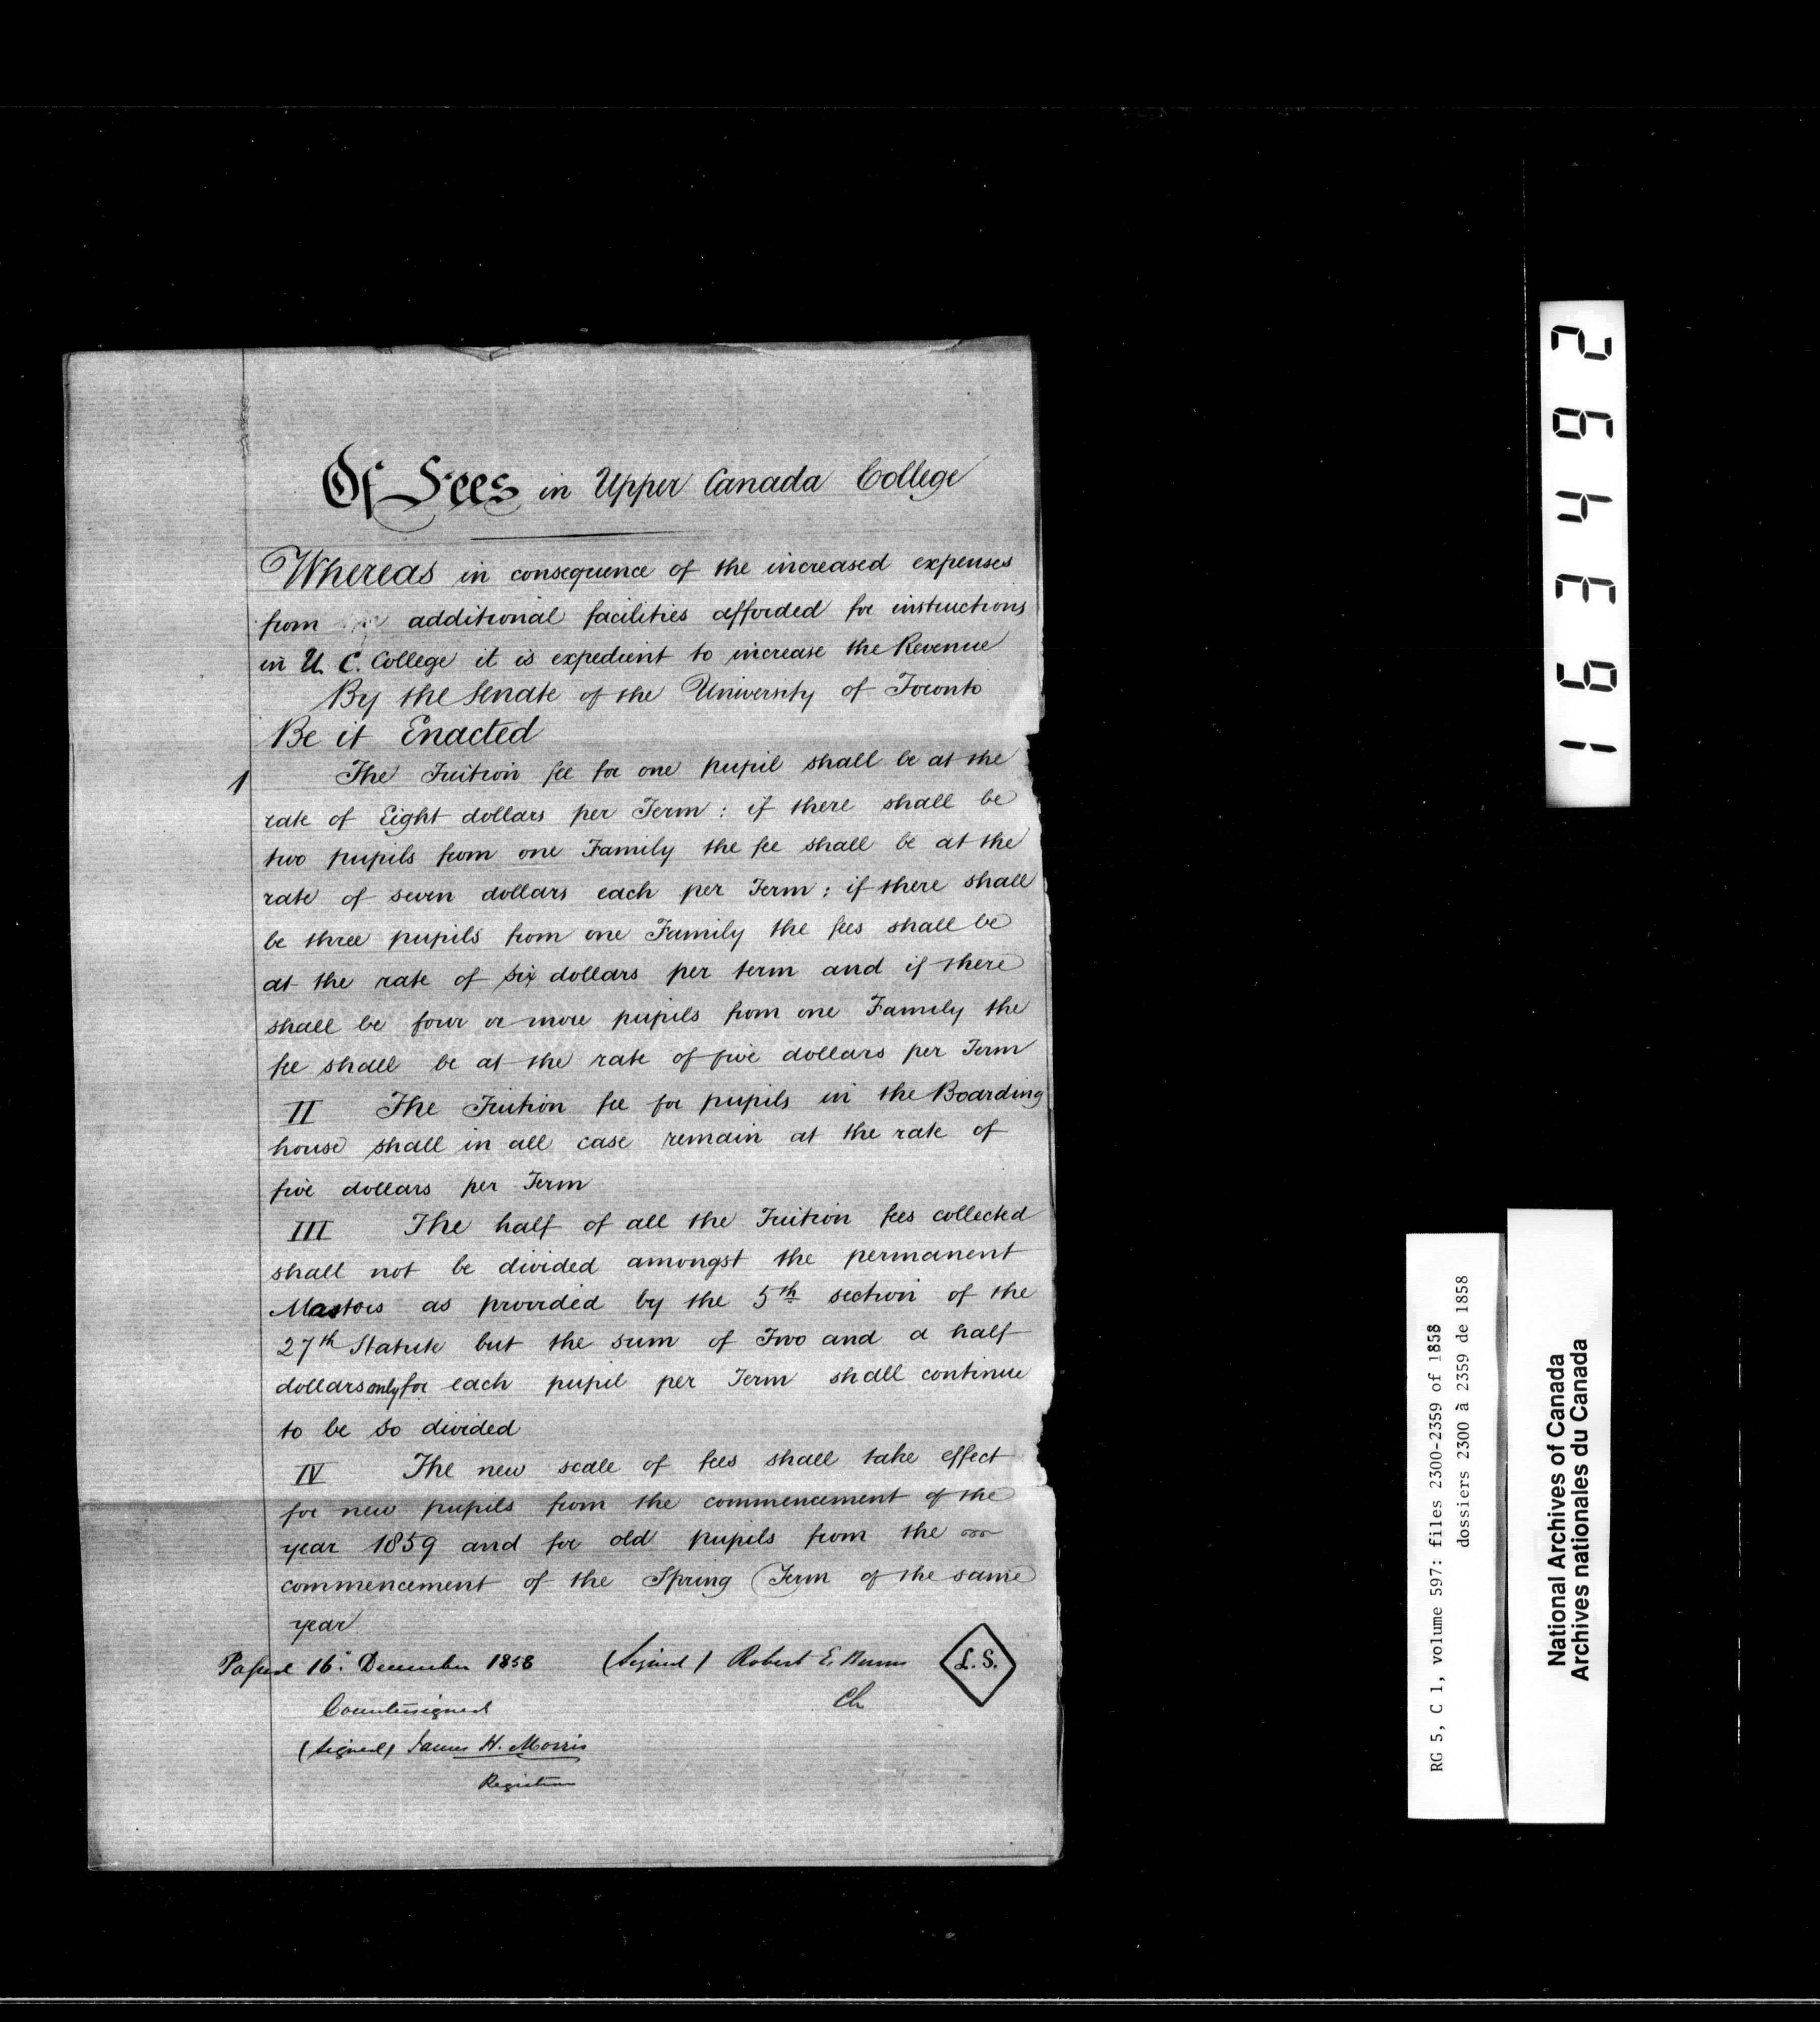 Of Fees in Upper Canada College
Whereas in consequence of the increased expenses
from additional facilities afforded for instructions
in U. C. College it is expedient to increase the Revenue
By the Senate of the University of Toronto
Be it Enacted
1 The Tuition fee for one pupil shall be at the
rate of Eight dollars per Term : if there shall be
two pupils from one Family the fee shall be at the
rate of seven dollars each per Term ; if there shall
be three pupils from one Family the fees shall be
at the rate of six dollars per term and if there
shall be four or more pupils from one Family the
fee shall be at the rate of five dollars per Term
II The Tuition fee for pupils in the Boarding
house shall in all case remain at the rate of
five dollars per Term
III The half of all the Tuition fees collected
shall not be divided amongst the permanent
Masters as provided by the 5th section of the
27th Statute but the sum of Two and a half
dollars only for each pupil per Term shall continue
to be so divided
IV The new scale of fees shall take effect
for new pupils from the commencement of the
year 1859 and for old pupils from the
commencement of the Spring Term of the same
year
Passed 16. December 1858 (Signed) Robert E. Burns L.S.
Countersigned Ch
(Signed) James H. Morris
Registrar
163492
RG 5, C 1, volume 597: files 2300-2359 of 1858
dossiers 2300 à 2359 de 1858
National Archives of Canada
Archives nationales du Canada